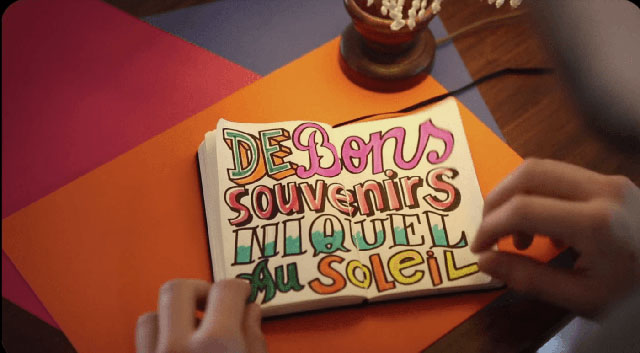 DE Bons
souvenirs
NIQUEL
Au SOLEIL